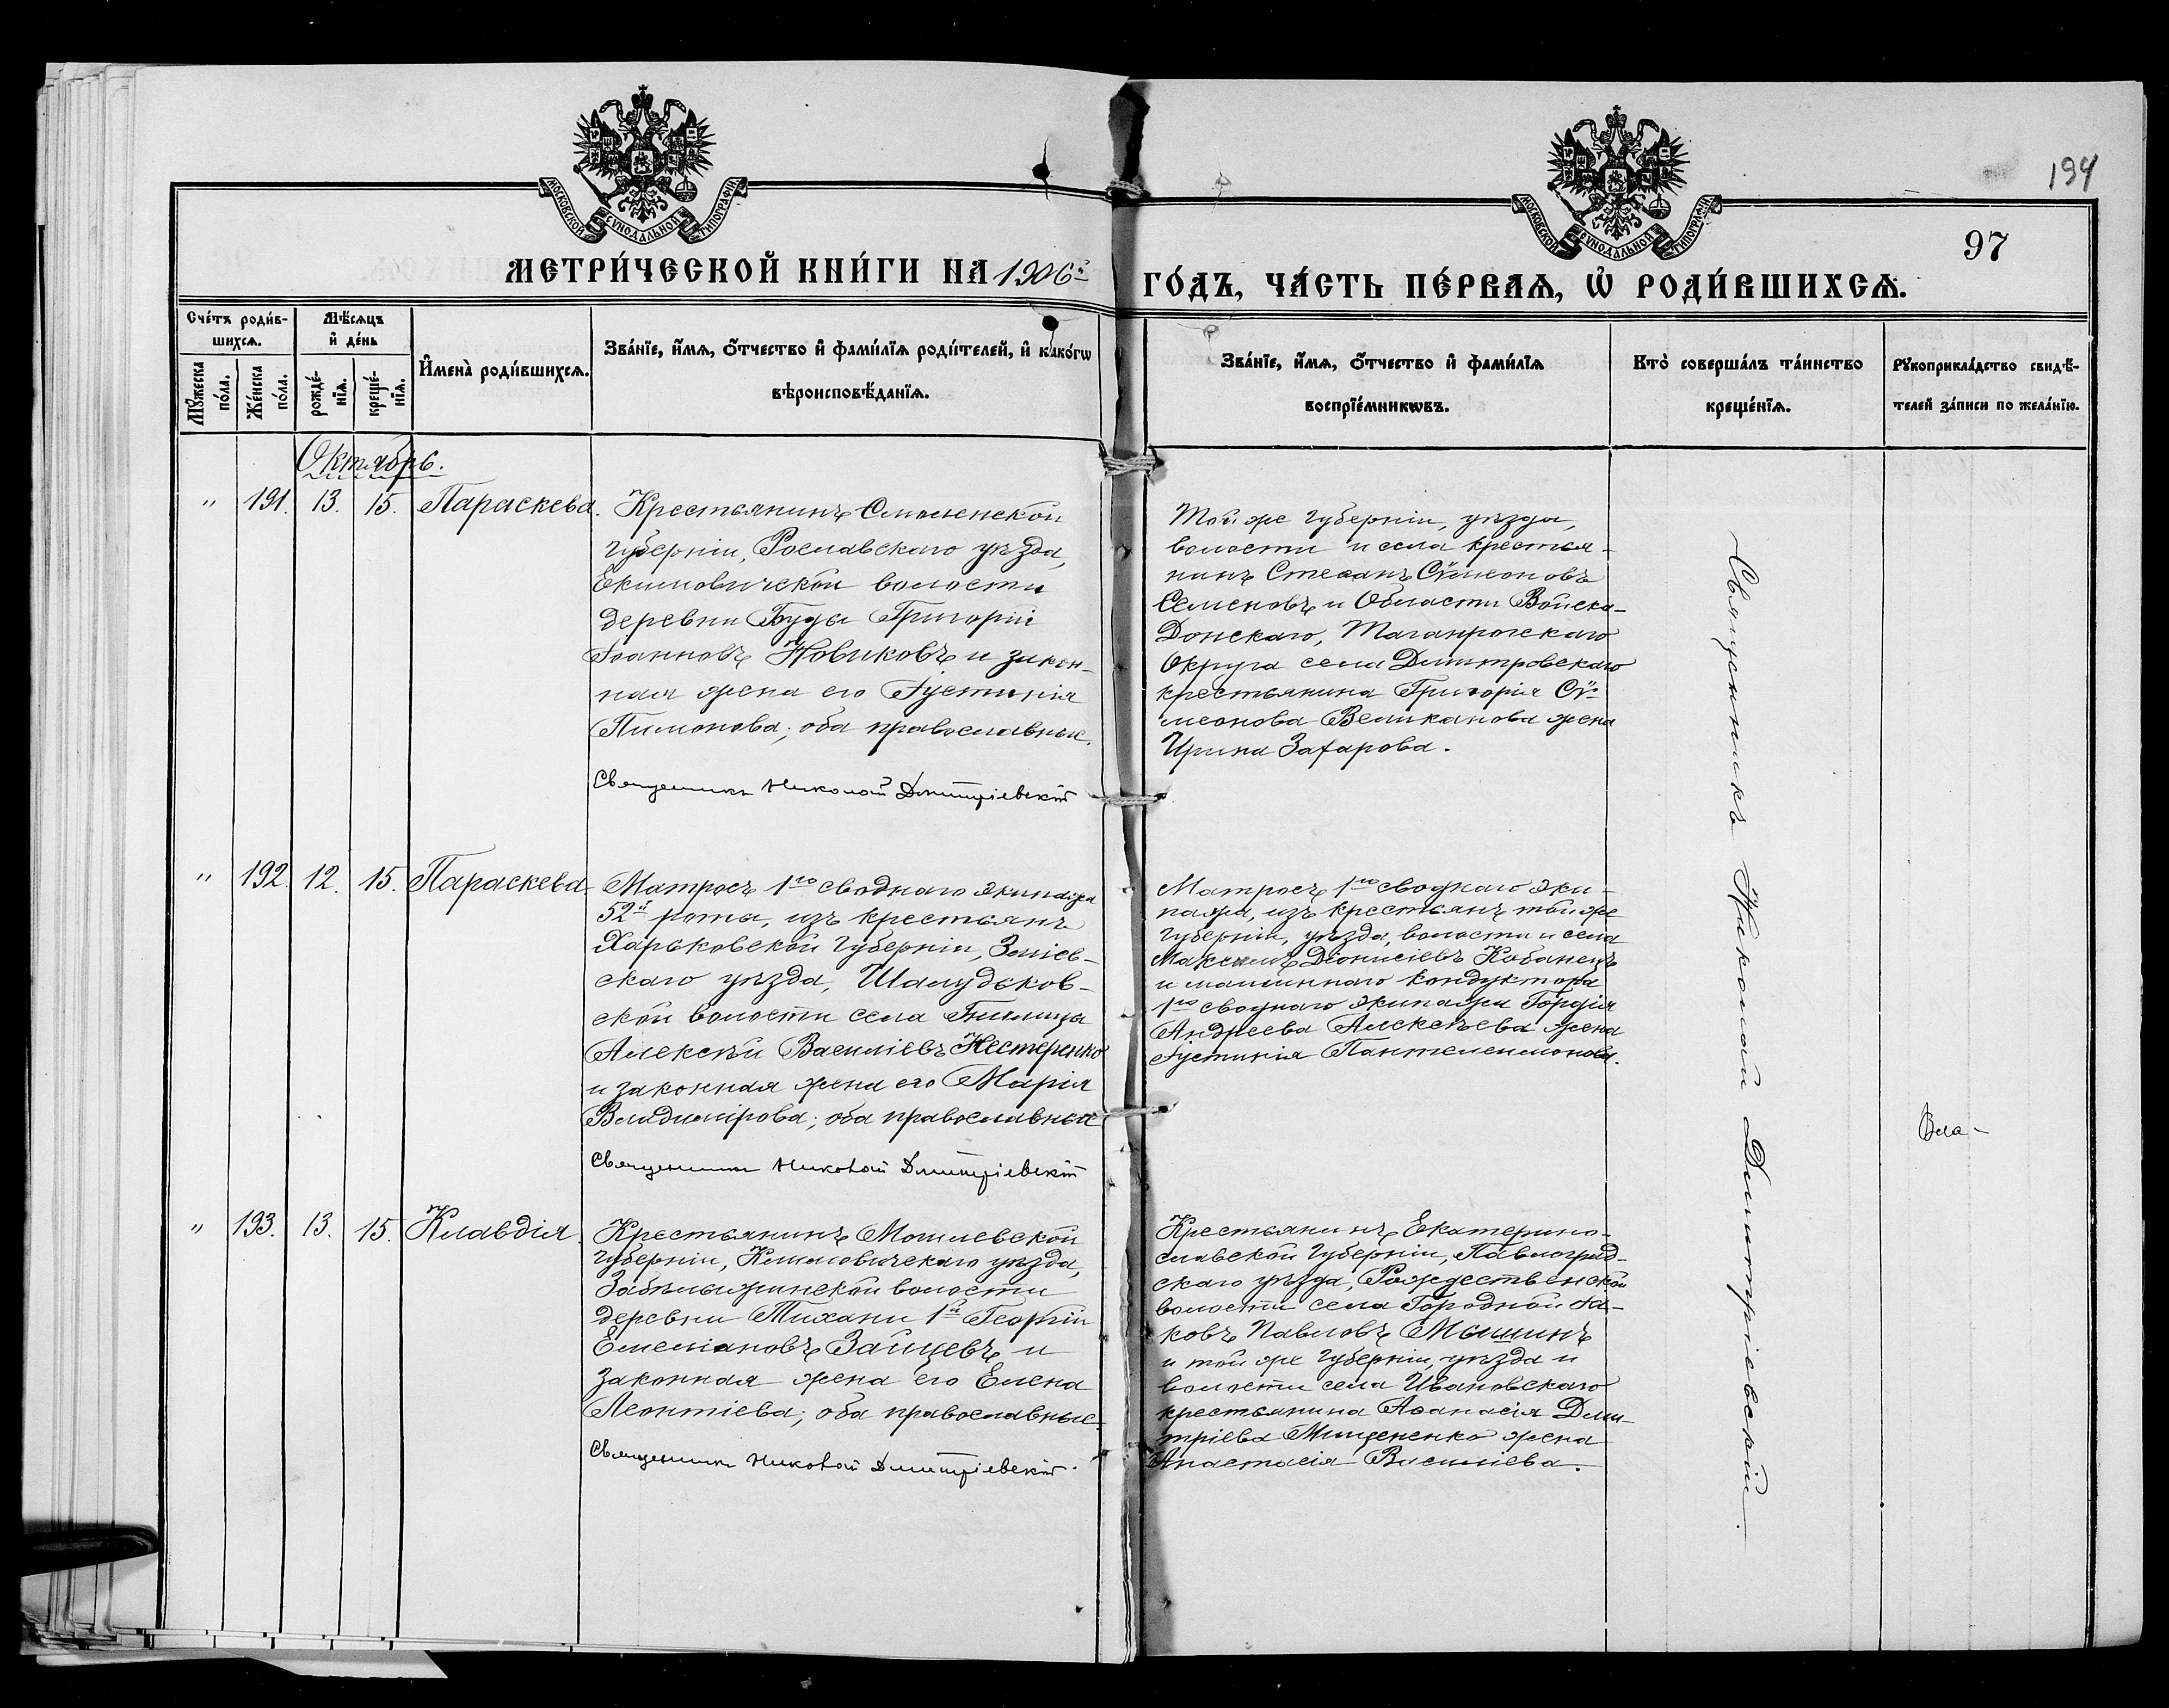 194
97
МОСКОВСКОЙ СѴНОДАЛЬНОЙ ТИПОГРАФІИ
МОСКОВСКОЙ СѴНОДАЛЬНОЙ ТИПОГРАФІИ
МЕТРИ́ЧЕСКОЙ КНИ́ГИ НА 1906й
ГО́ДЪ, ЧА́СТЬ ПЕ́РВАѦ, Ѡ҆ РОДИ́ВШИХСѦ.
Сче́тъ роди́в-
шихсѧ.
Мꙋ́жеска по́ла.
Же́нска по́ла.
Мѣ́сѧцъ
и҆ де́нь
рожде́-
нїѧ.
креще́-
нїѧ.
И҆мена̀ роди́вшихсѧ.
Зва́нїе, и҆́мѧ, ѻ҆́тчество и҆ фами́лїѧ роди́телей, и҆ како́гѡ
вѣроисповѣ́данїѧ.
Зва́нїе, и҆́мѧ, ѻ҆́тчество и҆ фами́лїѧ
воспрїе́мникѡвъ.
Кто̀ соверша́лъ та́инство
креще́нїѧ.
Рꙋкоприкла́дство свидѣ́-
телей за́писи по жела́нїю.
Октябрь.
" 191. 13. 15. Параскева.
Крестьянинъ Смоленской
губерніи, Рославскаго уѣзда,
Екимовичской волости
деревни Буды Григорій
Іоанновъ Новиковъ и закон-
ная жена его Іустинія
Пимонова; оба православные.
Священникъ Николай Димитріевскій
Той же губерніи, уѣзда,
волости и села крестья-
нинъ Стефанъ Сѵмеоновъ
Семеновъ и Области Войска
Донскаго, Таганрогскаго
Округа села Димтровскаго
крестьянина Григорія Сѵ-
меонова Великанова жена
Ирина Захарова.
" 192. 12. 15. Параскева
Матросъ 1го своднаго экипажа
52й роты, изъ крестьянъ
Харьковской губерніи, Зміев-
скаго уѣзда, Шалудьков-
ской волости села Гнилица
Алексѣй Василіевъ Нестеренко
и законная жена его Марія
Владимірова; оба православные
Священникъ Николай Димитріевскій
Матросъ 1го своднаго эки-
пажа, изъ крестьянъ той же
губерніи, уѣзда, волости и села
Максимъ Діонисіевъ Кобанецъ
и машиннаго кондуктора
1го своднаго экипажа Гордія
Андреева Алексѣева жена
Іустинія Пантелеимонова.
" 193. 13. 15. Клавдія
Крестьянинъ Могилевской
губерніи, Климовичскаго уѣзда,
Забѣлышинской волости
деревни Тихани 1й Георгій
Емеліановъ Зайцевъ и
законная жена его Елена
Леонтіева; оба православные.
Священникъ Николай Димитріевскій.
Крестьянинъ Екатерино-
славской губерніи, Павлоград-
скаго уѣзда, Рождественской
волости села Городной Іа-
ковъ Павловъ Мышинъ
и той же губерніи, уѣзда и
волости села Ивановскаго
крестьянина Аѳанасія Дими-
тріева Мищененко жена
Анастасія Василіева.
Священникъ Николай Димитріевскій.